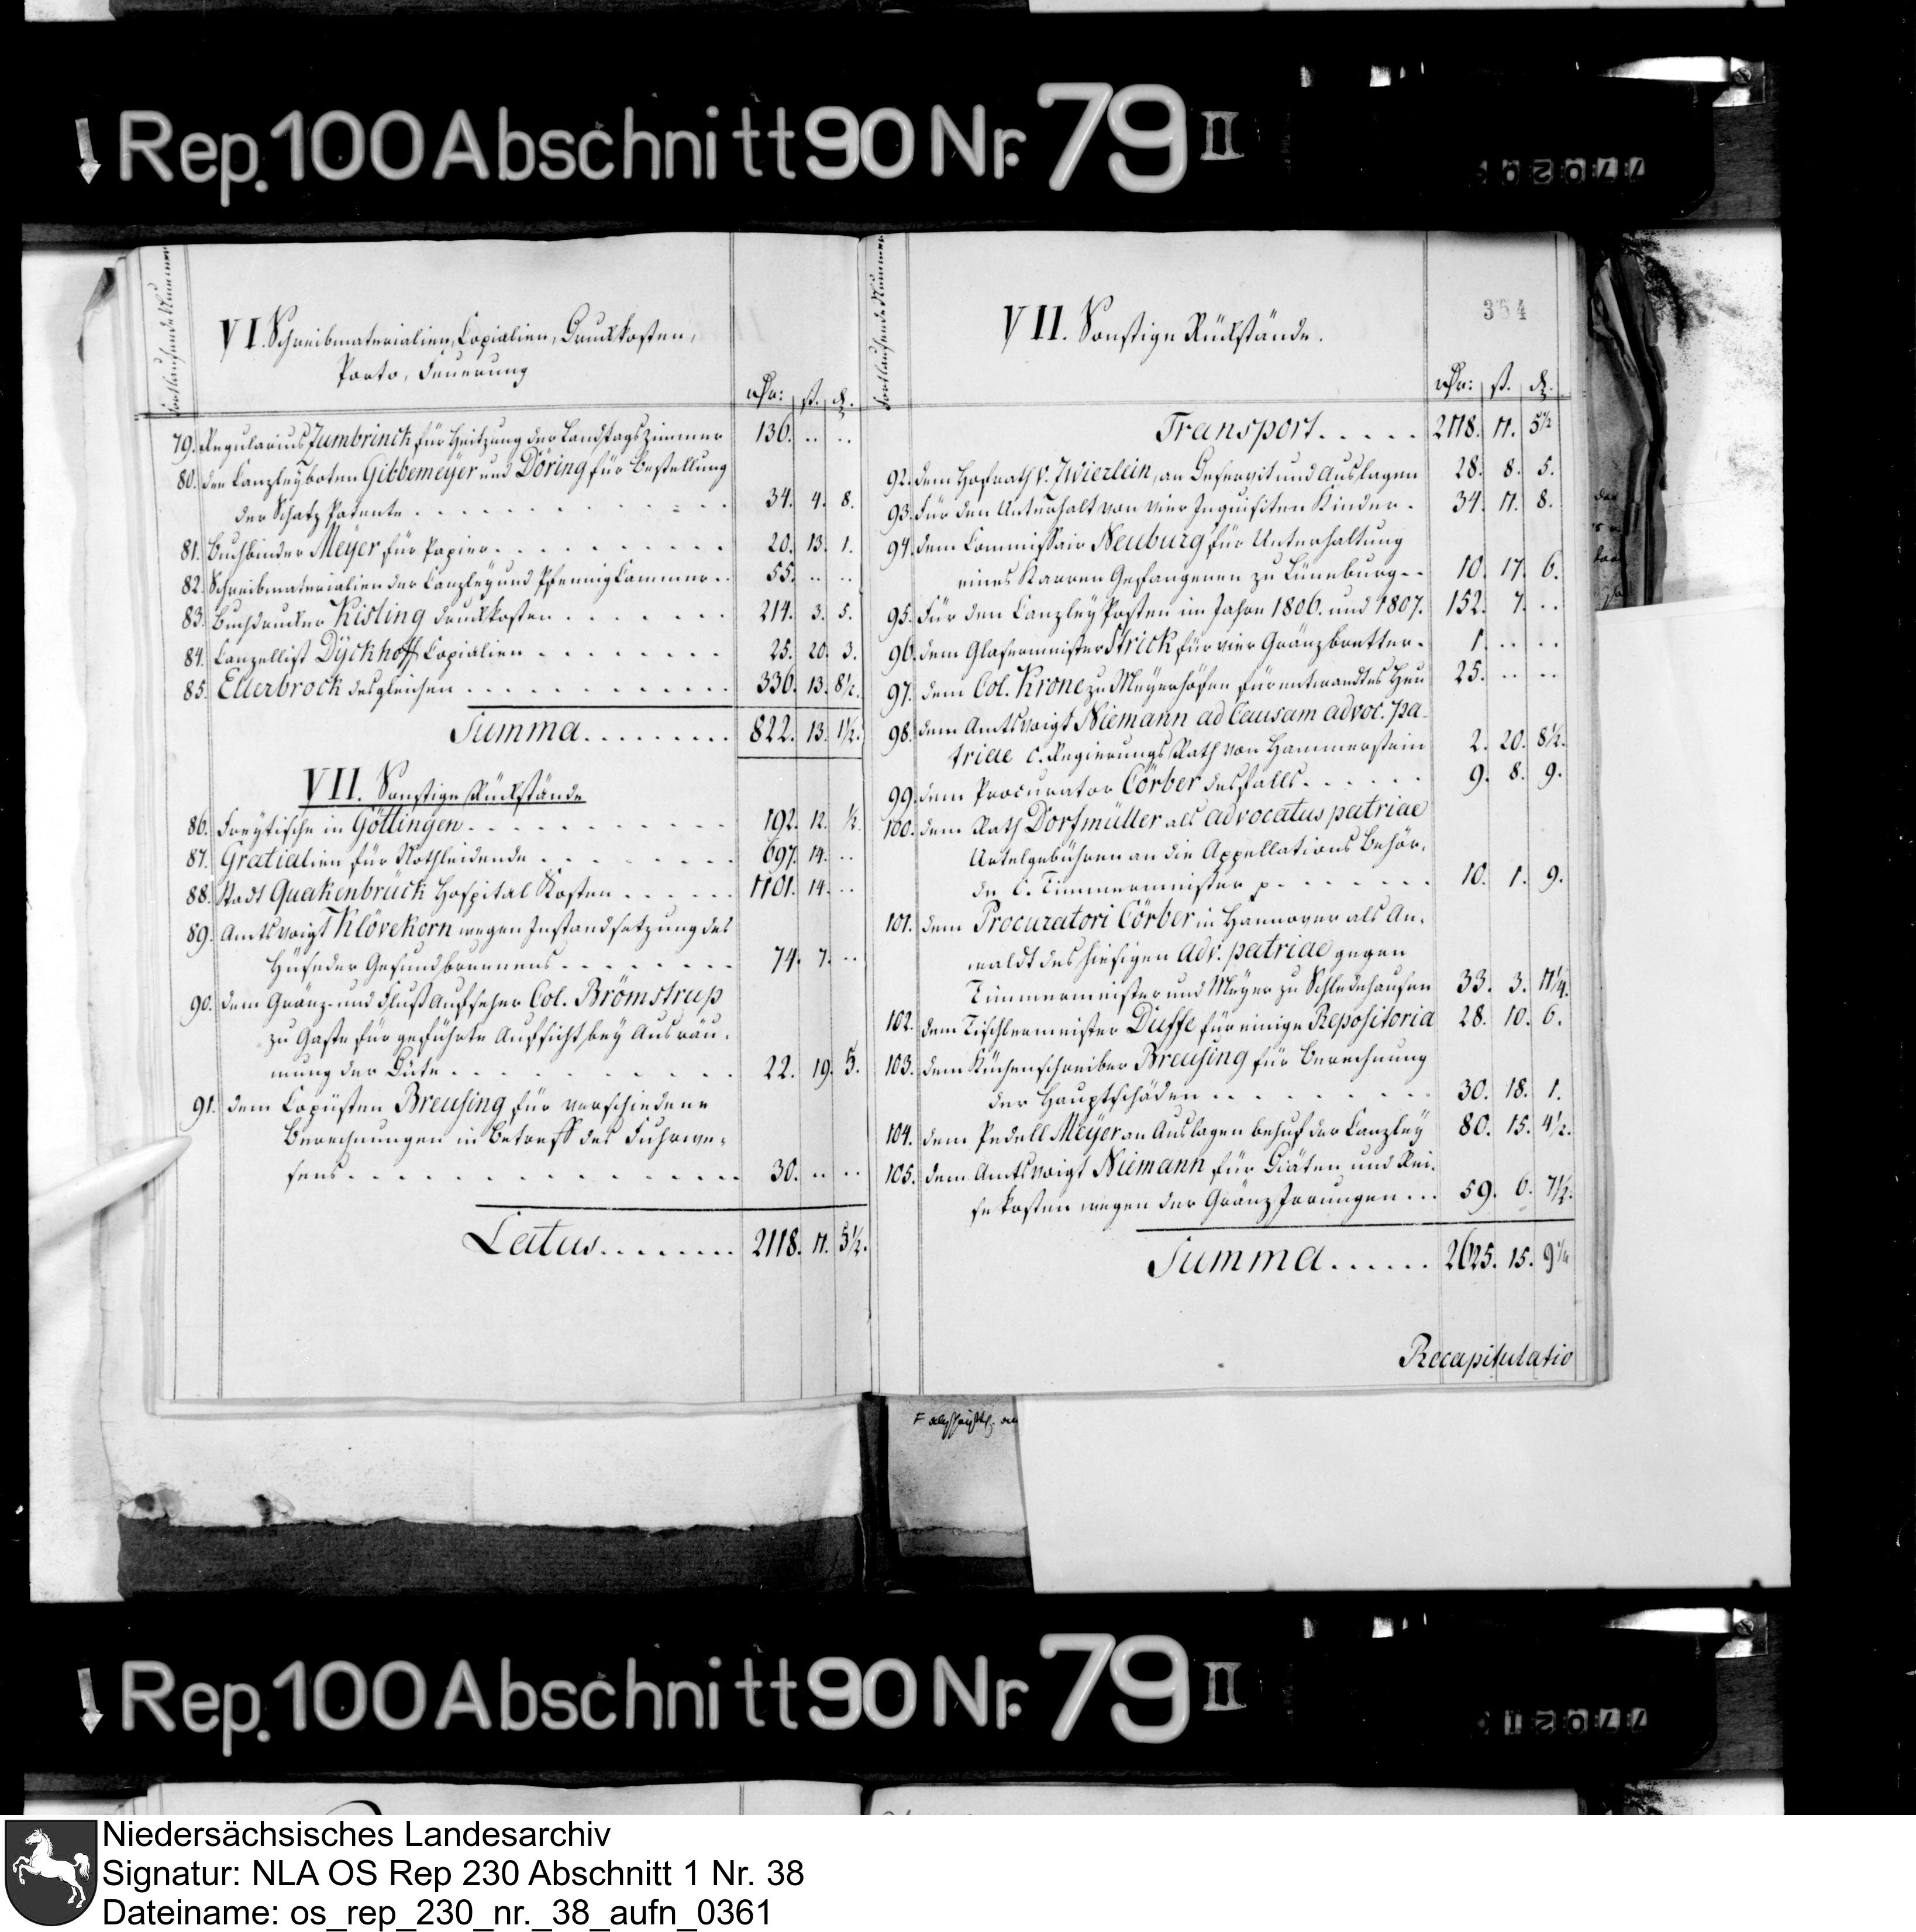 Rep. 100 Abschnitt 90 Nr. 79 II
77020
Fortlaufende Nummer
VI. Schreibmaterialien, Copialien, Druckkosten,
Porto, Feuerung
rthr: ß. d.
79. Regularius Jumbrinck für Heitzung der Landtags Zimmer 136. .. ..
80. den Canzleyboten Gibbemeyer und Döring für Bestellung
der Schatz Patente 34. 4. 8.
81. Buchbinder Meyer für Papier 20. 13. 1.
82. Schreibmaterialien der Canzley und Pfennig Cammer 55. .. ..
83. Buchdrucker Kisling Druckkosten 214. 3. 5.
84. Canzellist Dyckhoff Copialien 25. 20. 3.
85. Ellerbrock desgleichen 336. 13. 8½.
Summa 822. 13. 1½.
VII. Sonstige Rückstände
86. Freytische in Göttingen 192. 12. ½
87. Gratialien für Nothleidende 697. 14. ..
88. Stadt Quakenbrück Hospital Kosten 1101. 14. ..
89. Amtsvoigt Klövekorn wegen Instandsetzung des
Hüseder Gesundbrunnens 74. 7. ..
90. dem Gränz- und Fluß Aufseher Col. Brömstrup
zu Gaste für geführte Aufsicht bey Ausräu-
mung der Düte 22. 19. 5.
91. dem Copiisten Breusing für verschiedene
Berechnungen in Betreff des Fuhrwe-
sens 30. .. ..
Latus 2118. 11. 5½.
Fortlaufende Nummer
354
VII. Sonstige Rückstände.
rthr: ß. d.
Transport 2118. 11. 5½
92. dem Hofrath v. Zwierlein, an Deservit und Auslagen 28. 8. 5.
93. Für den Unterhalt von vier Inquisiten Kinder 34. 11. 8.
94. dem Commissair Neuburg für Unterhaltung
eines Karren Gefangenen zu Lüneburg 10. 17. 6.
95. Für den Canzley Posten im Jahre 1806. und 1807. 152. 7. ..
96. dem Glasermeister Strick für vier Gränzbretter 1. .. ..
97. dem Col. Krone zu Meyerhöfen für entwandtes Heu 25. .. ..
98. dem Amtsvoigt Niemann ad Causam advoc. pa-
triae c. Regierungs Rath von Hammerstein 2. 20. 8½.
99. dem Procurator Cörber desfalls 9. 8. 9.
100. dem Rath Dorfmüller als advocatus patriae
Urtelgebühren an die Appellations Behör-
de C. Timmermeister p. 10. 1. 9.
101. dem Procuratori Cörber in Hannover als An-
waldt des hiesigen Adv. patriae gegen
Timmermeister und Meyer zu Schledehausen 33. 3. 11¼.
102. dem Tischlermeister Duffe für einige Repositoria 28. 10. 6.
103. dem Küchenschreiber Breusing für Berechnung
der Hauptschäden 30. 18. 1.
104. dem Pedell Meyer an Auslagen behuf der Canzley 80. 15. 4½.
105. dem Amtsvoigt Niemann für Diäten und Rei-
sekosten wegen der Gränz Irrungen 59. 6. 7½.
Summa 2625. 15. 9¼
Recapitulatio
Rep. 100 Abschnitt 90 Nr. 79 II
77021
Niedersächsisches Landesarchiv
Signatur: NLA OS Rep 230 Abschnitt 1 Nr. 38
Dateiname: os_rep_230_nr._38_aufn_0361